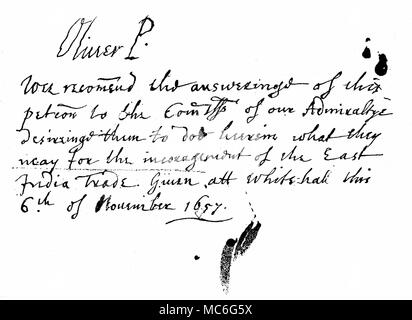 Oliver P.
Wee recomend the answeringe of this
peticon to the Comrs of our Admiraltye
desiringe them to doe herein what they
may for the incoragement of the East
India trade Given att White-hall this
6th of November 1657.
alamy
alamy
Image ID: MC6G5X
www.alamy.com